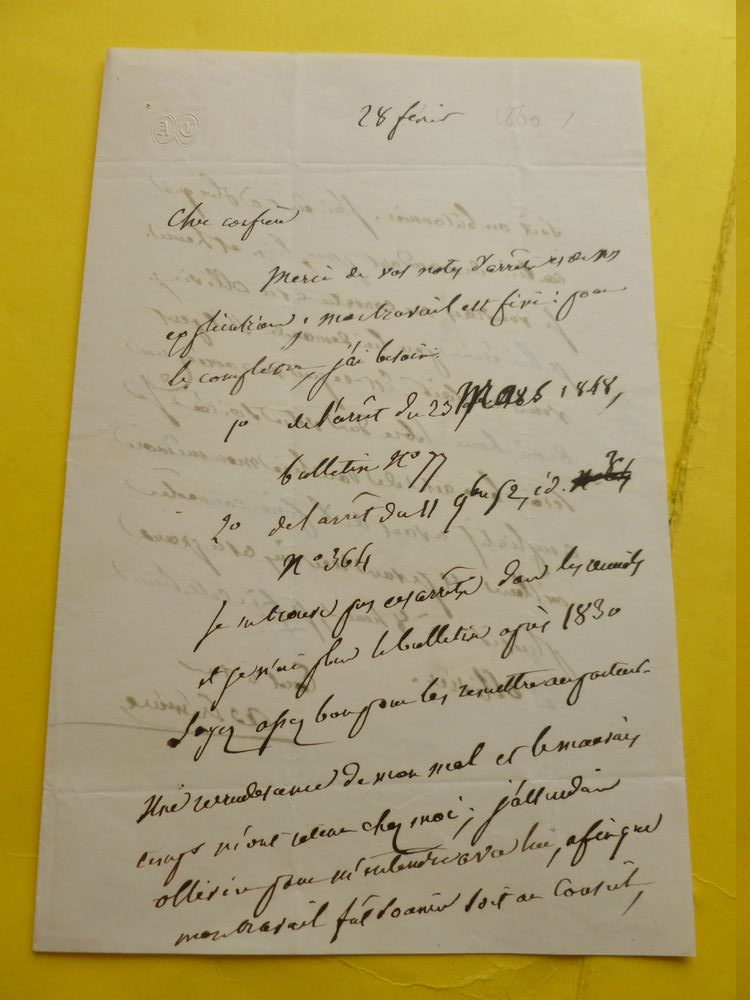 AC
28 février 1860
Cher confrère
Merci de vos notes d'arrêts et de vos
explications; mon travail est fini: pour
le compléter, j'ai besoin:
1º de l'arrêt du 23 Mars 1848,
bulletin Nº 77
2º de l'arrêt du 11 9bre 52, id.
Nº 364
Je ne trouve pas ces arrêts dans les recueils
et je n'ai plus le bulletin après 1830
Soyez assez bon pour les remettre au porteur.
Une recrudescence de mon mal et le mauvais
temps m'ont retenu chez moi; j'attendais
ollivier pour m'entendre avec lui, afin que
mon travail fût soumis soit au Conseil,